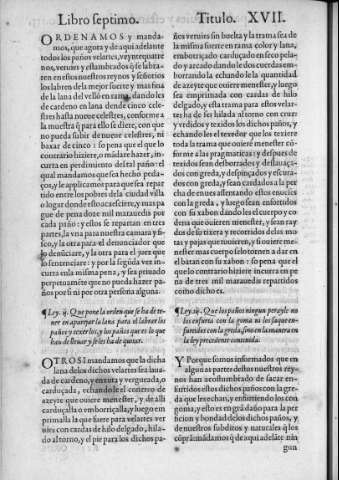 Libro septimo.
Titulo. XVII.
ORDENAMOS y manda-
mos, que agora y de aqui adelante
todos los paños velartes, veyntequatre
nos, verueis y estambrados q̃ se labra-
ren en estos nuestros reynos y señorios
los labren dela mejor suerte y mas fina
de la lana del vellō en rama, dandoles
de cardeno en lana desde cinco cele-
stres hasta nueue celestres, conforme a
la muestra q̃ para ello se diere, con que
no pueda subir de nueue celestres, ni
baxar de cinco: so pena que el que lo
contrario hiziere, o mādare hazer, in-
curra en perdimiento del tal paño: el
qual mandamos que sea hecho peda-
ços, y le applicamos para que sea repar
tido entre los pobres dela ciudad villa
o lugar donde esto acaesciere, y mas pa
gue de pena doze mil marauedis por
cada paño: y estos se repartan en tres
partes, la vna para nuestra camara y fis-
co, y la otra para el denunciador que
lo denūciare, y la otra para el juez que
lo sentenciare: y por la segūda vez in-
curra en la misma pena, y sea priuado
perpetuamēte que no pueda hazer pa-
ños por si ni por otra persona alguna.
¶ Ley. ij. Que pone la orden que se ha de te-
ner en apartar la lana para el labrar los
paños y texer los, y los palios que es lo que
han de lleuar y se les ha de quitar.
OTROSI mandamos que la dicha
lana delos dichos velartes sea laua
da de cardeno, y enxuta y vergueada, o
carduçada, echandole el centeno de
azeyte que ouiere menester, y de alli
carduçalla o emborriçalla, y luego en
prima lla la que fuere para velartes ver
uies con cardas de hilo delgado, hila-
do al torno, y el pie para los dichos pa-
ños veruies sin buelta y la trama sea de
la misma suerte en rama color y lana,
emborriçado carduçado en seco pela-
do y arcado dandole dos cuerdas em-
borrando la echandole la quantidad
de azeyte que ouiere menester, y luego
sea emprimada con cardas de hilo
delgado, y esta trama para estos velar-
tes ha de ser hilada al torno con cruz
y vrdidos y texidos los dichos paños, y
echando les el texedor que los texiere
toda la trama que ouiere menester cō-
forme a las pragmaticas: y despues de
texidos sean desborrados y deslauaça-
dos con greda, y despinçados y escura-
dos con greda, y sean cardados a la per
cha de enues assentando estos enueses
con la greda, y luego sean enfortidos
con su xabon dandoles el cuerpo y co
dena que ouieren menester, y sean ray
dos de su tixera y recorridos delos mo
tas y pajas que touieren, y si ouiere me-
nester mas cuerpo se lo tornen a dar en
el batan con su xabon: so pena que el
que lo contrario hiziere incurra en pe
na de tres mil marauedis repartidos
como dicho es.
¶ Ley. iij. Que los paños ningun perayle no
les enfurta con la goma ni los saque en-
furtidos con la greda, sino en la manera en
la ley precedente contenida.
Y Porque somos informados que en
algunas partes destos nuestros rey-
nos han acostumbrado de sacar en-
furtidos estos dichos paños con la gre-
da que le echan, y enfurtiendo los con
goma, y esto es en grā daño para la per
fecion y bondad delos dichos paños, y
de nuestros subditos y naturales q̃ los
cōprā: mādamos q̃ de aqui adelāte nin
gun